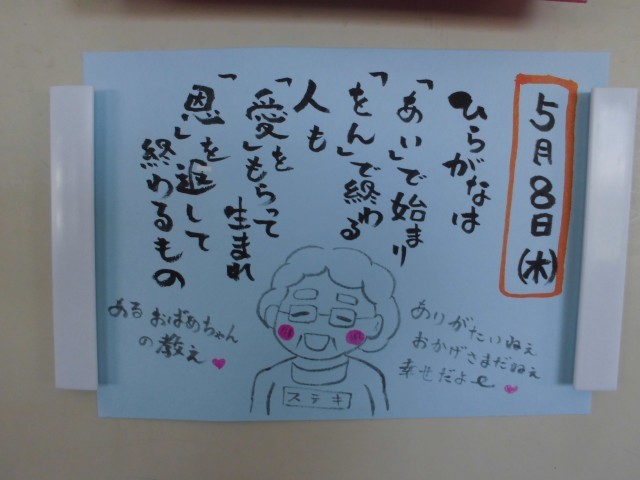 5月8日(木)
ひらがなは
「あい」で始まり
「をん」で終わる
人も
「愛」をもらって
生まれ
「恩」を返して
終わるもの
ありがたいねぇ
おかげさまだねぇ
幸せだよ〜
ステキ
ある おばあちゃん
の教え